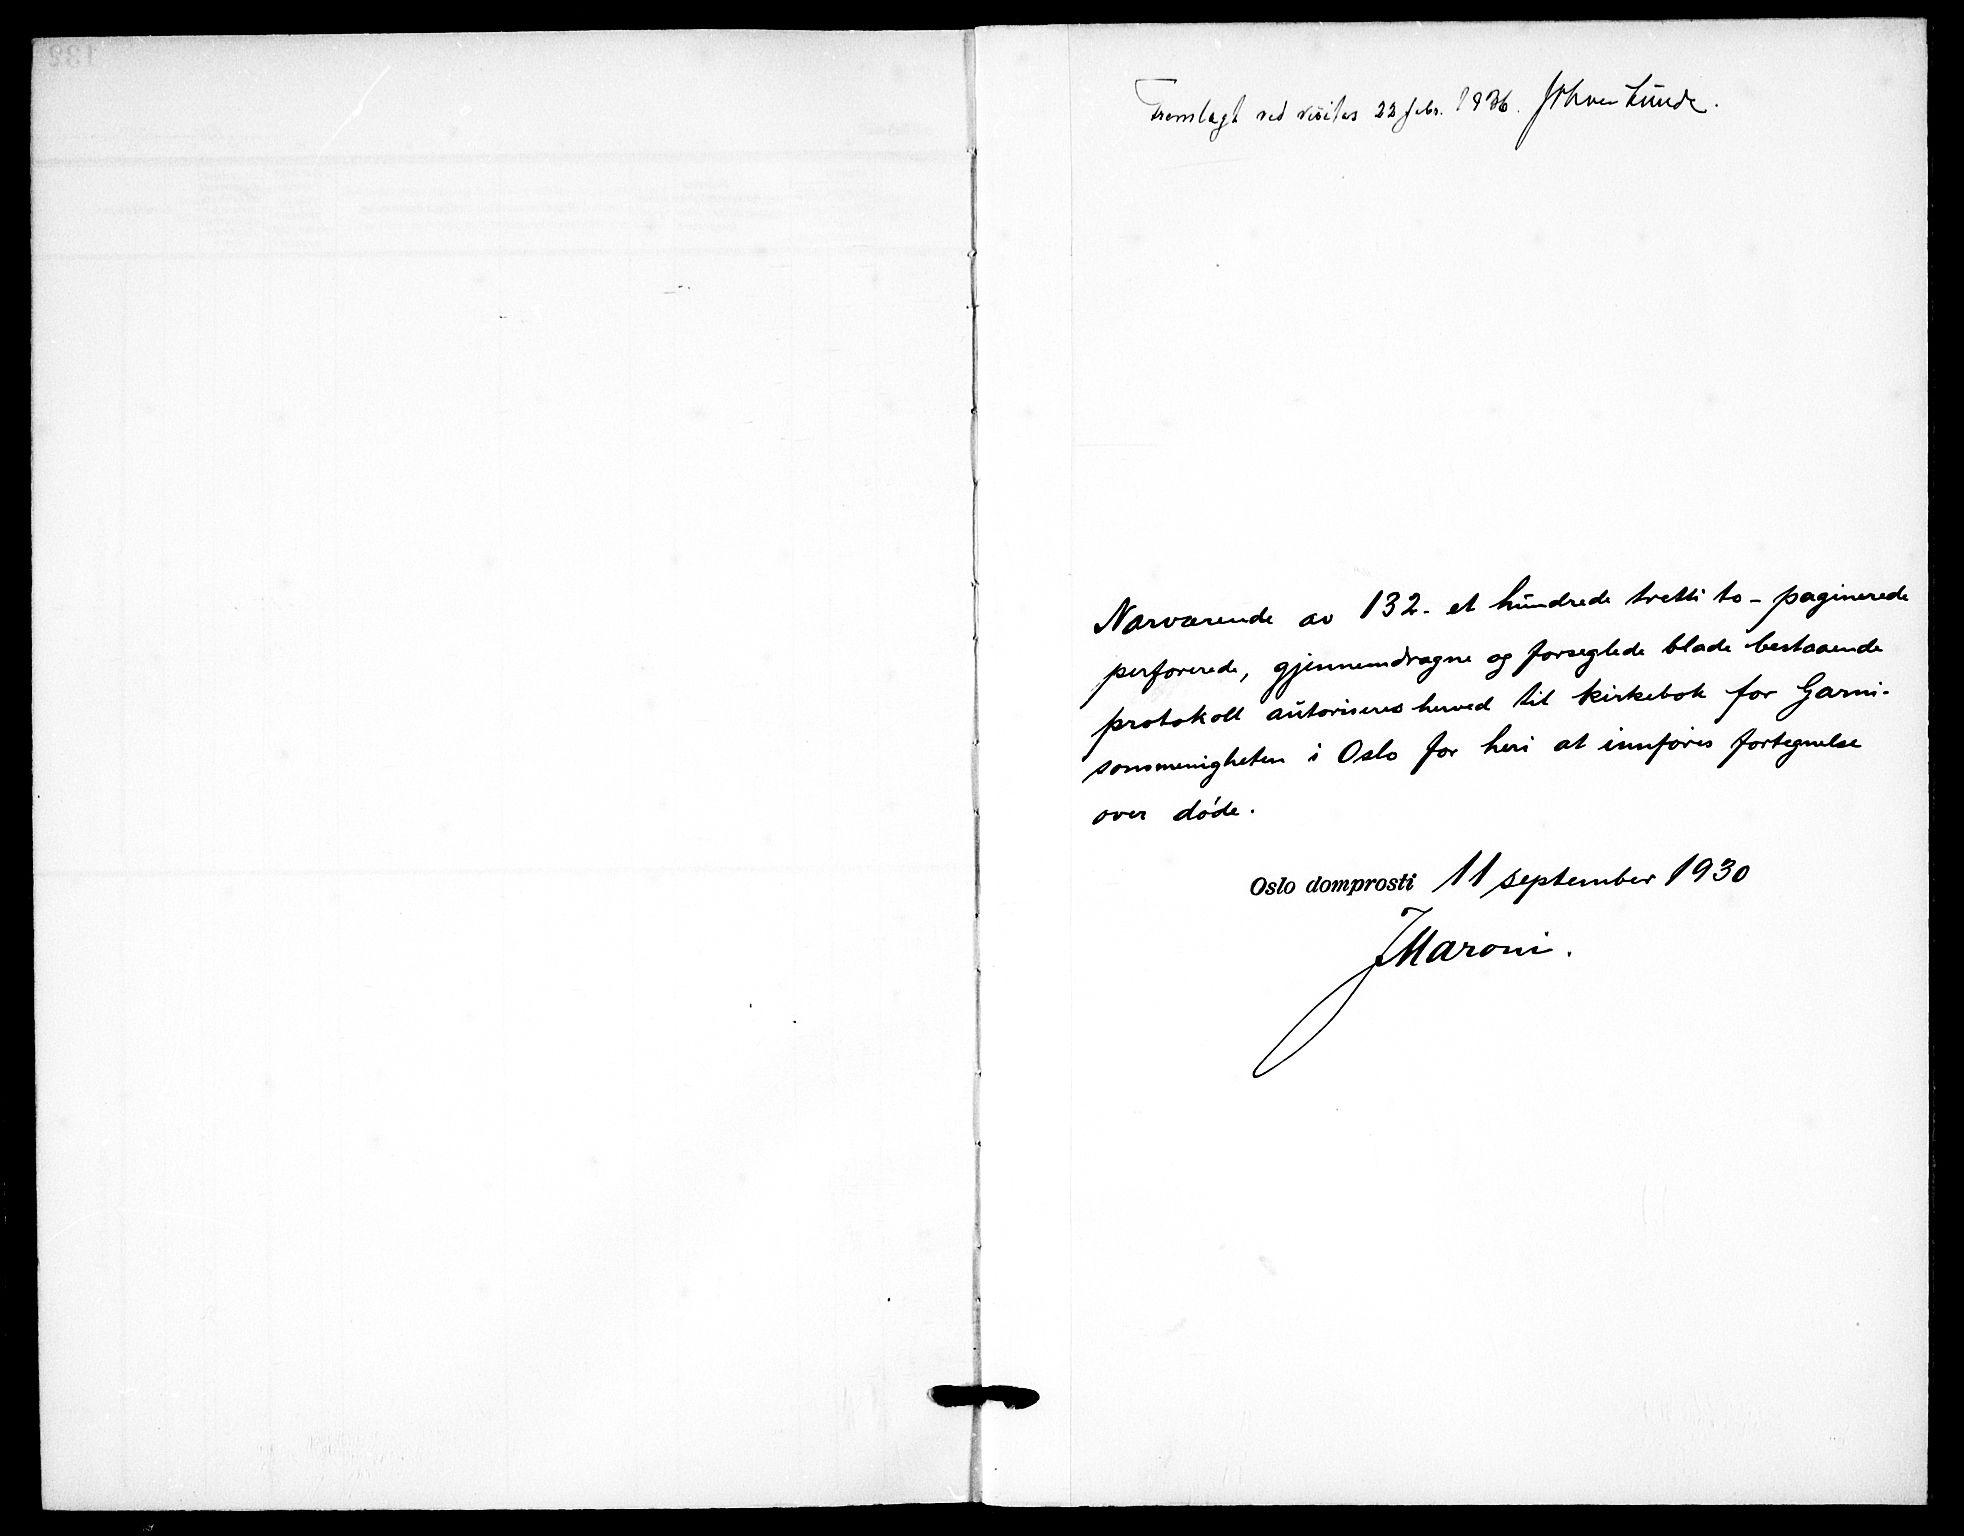 132
Fremlagt ved visitas 22 febr. 1936. Johan Lunde.
Nærværende av 132 - et hundrede tretti to - paginerede
perforerede, gjennemdragne og forseglede blade bestaaende
protokoll autoriseres herved til kirkebok for Garni-
sonsmenigheten i Oslo for heri at innføres fortegnelse
over døde.
Oslo domprosti 11 september 1930
J Maroni.